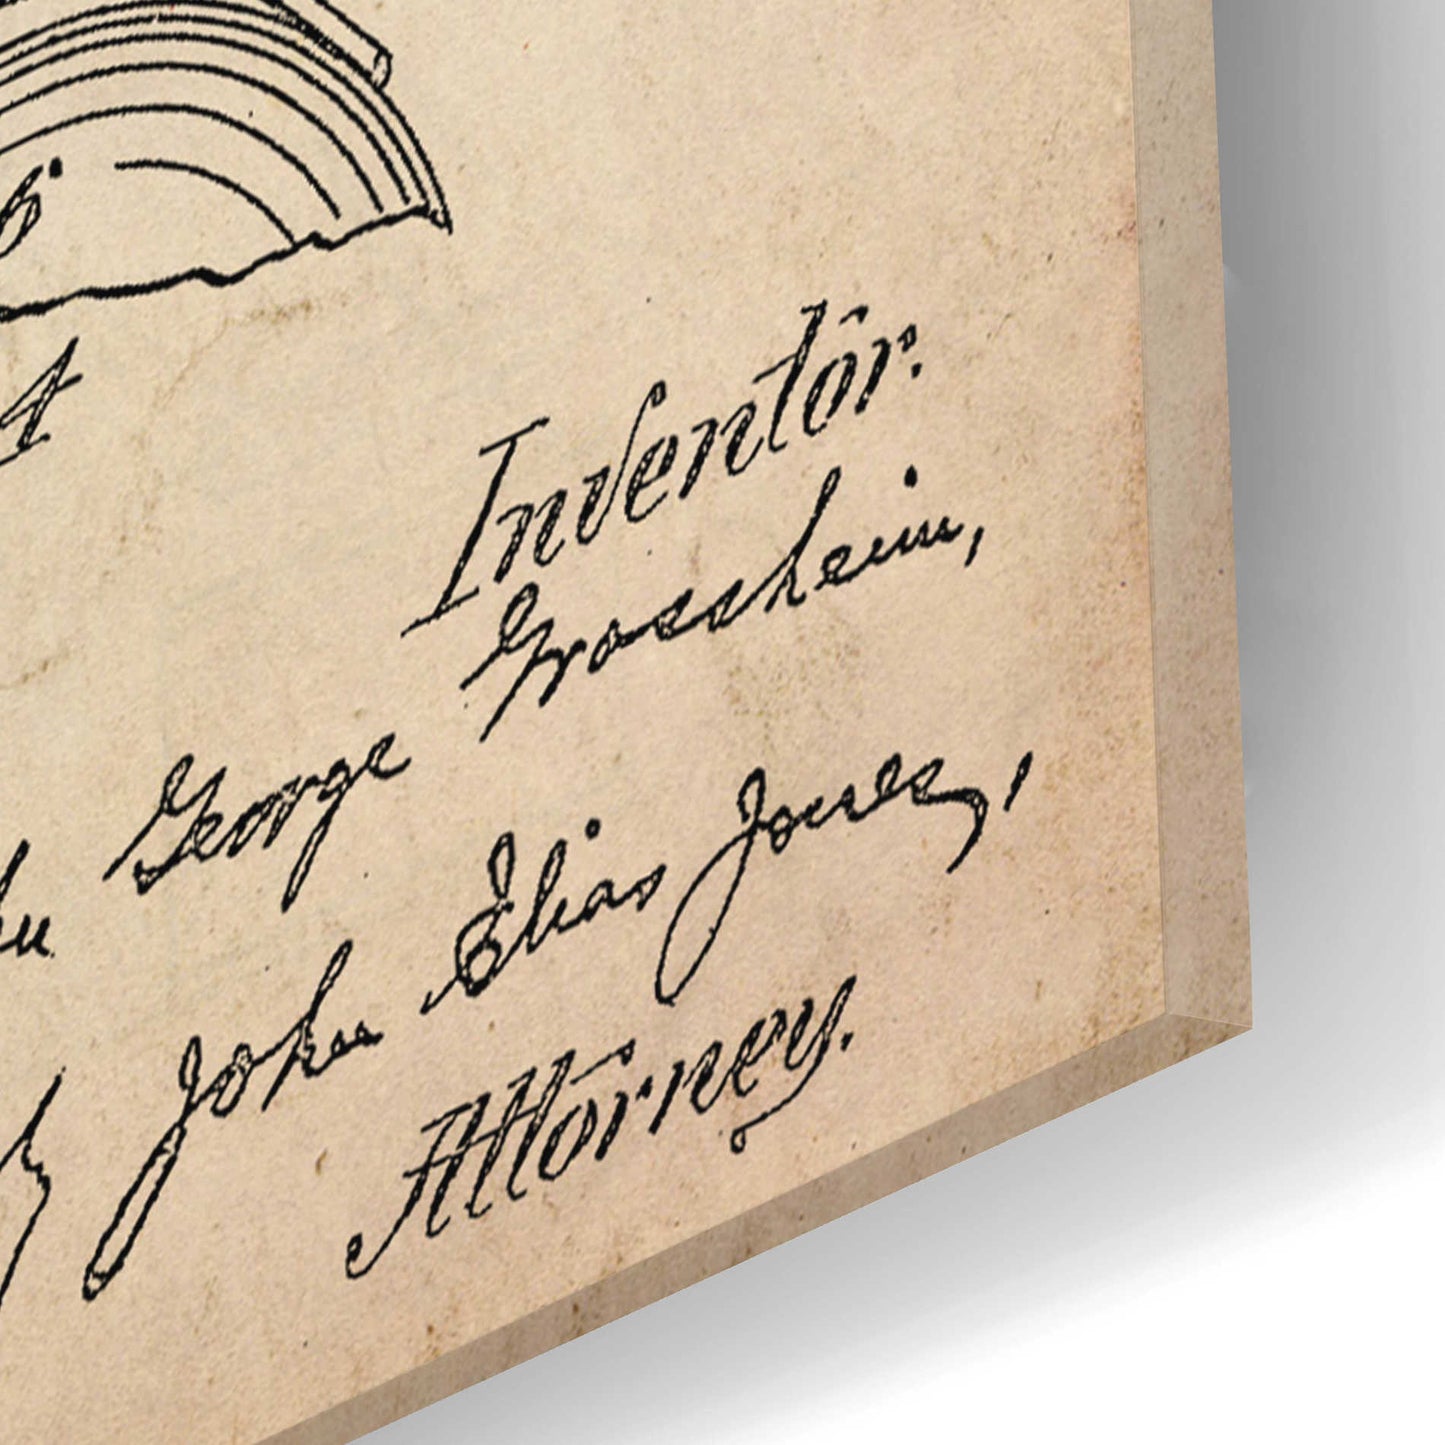 Inventor.
George Grossheim,
John Elias Jones,
Attorney.